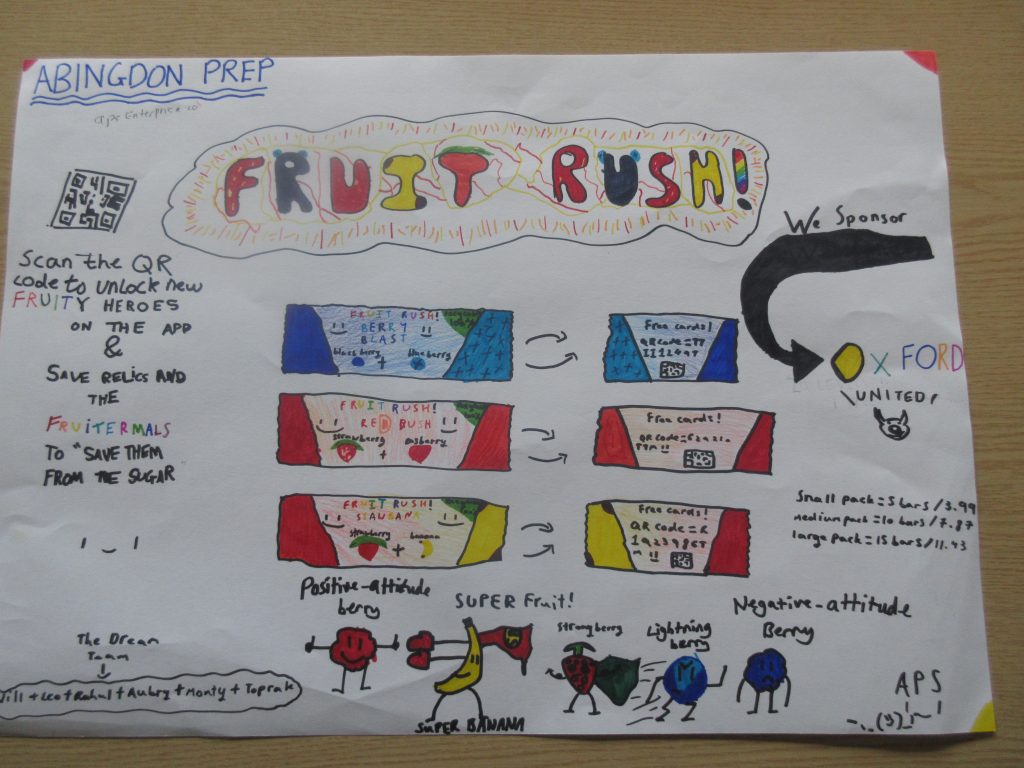 ABINGDON PREP
aps Enterprise co
FRUIT RUSH!
Scan the QR
code to unlock new
FRUITY HEROES
ON THE APP
&
SAVE RELICS AND
THE
FRUITERMALS
TO "SAVE THEM
FROM THE SUGAR"
We Sponsor
OXFORD
UNITED
FRUIT RUSH!
BERRY
BLAST
blackberry + blueberry
Free cards!
QR code =
FRUIT RUSH!
RED BUSH
strawberry + raspberry
Free cards!
QR code =
FRUIT RUSH!
STAUBANA
strawberry + banana
Free cards!
QR code =
Small pack = 5 bars / 3.99
Medium pack = 10 bars / 7.87
large pack = 15 bars / 11.43
Positive-attitude
berry
SUPER Fruit!
SUPER BANANA
Strongberry
Lightning
berry
Negative-attitude
Berry
The Dream
Team
+ Leo + Rahul + Aubry + Monty + Toprak
APS